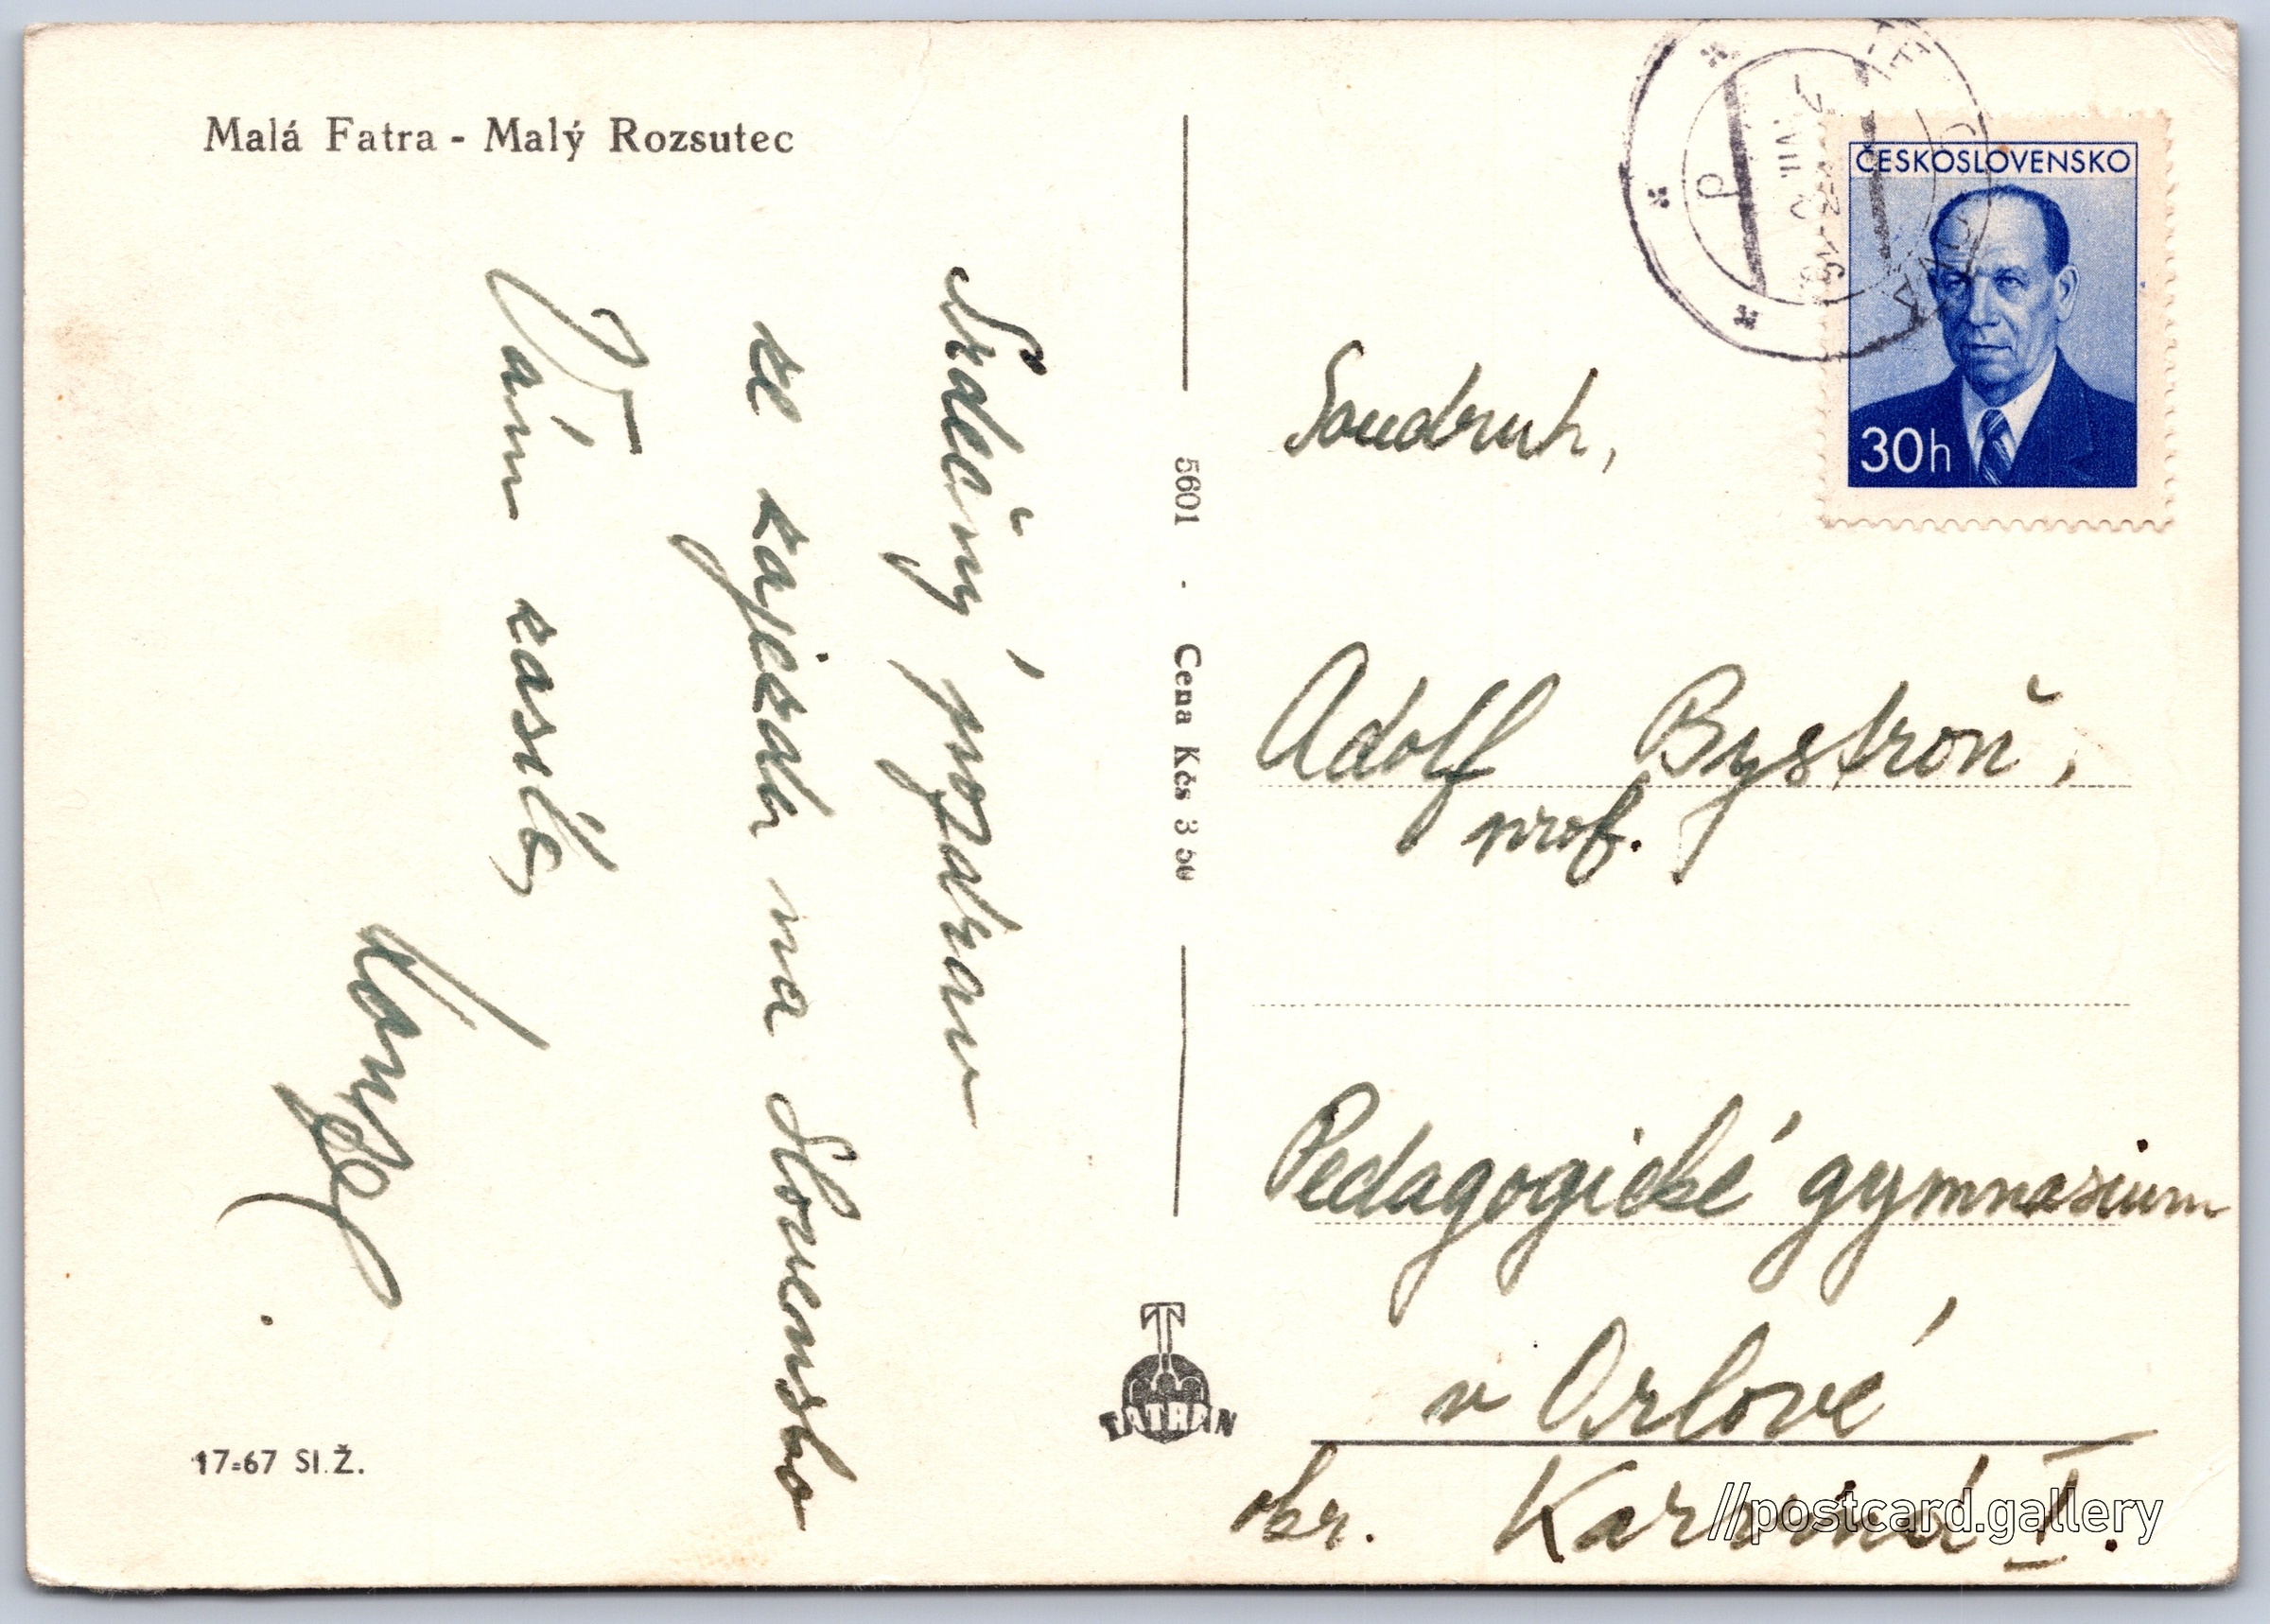 Malá Fatra - Malý Rozsutec
Srdečný pozdrav
ze zájezdu na Slovensko
Vám zasílá
17-67 Sl. Ž.
5601 - Cena Kčs 3 50
TATRAN
ČESKOSLOVENSKO
30h
Soudruh,
Adolf Bystroň,
prof.
Pedagogické gymnasium
v Orlové
okr. Karviná I.
//postcard.gallery